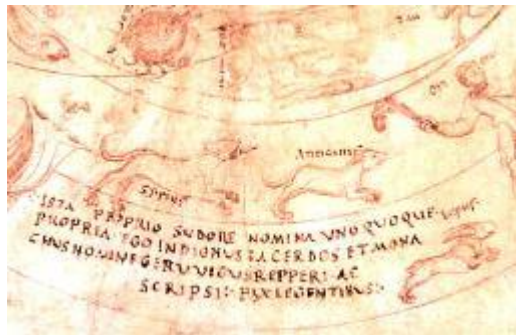 ANTICANIS
SYRIUS
LEPUS
ISTA PROPRIO SUDORE NOMINA UNO QUOQUE
PROPRIA EGO INDIGNUS SACERDOS ET MONA
CHUS NOMINE GERUVIGUS REPPERI AC
SCRIPSI: PAX LEGENTIBUS: